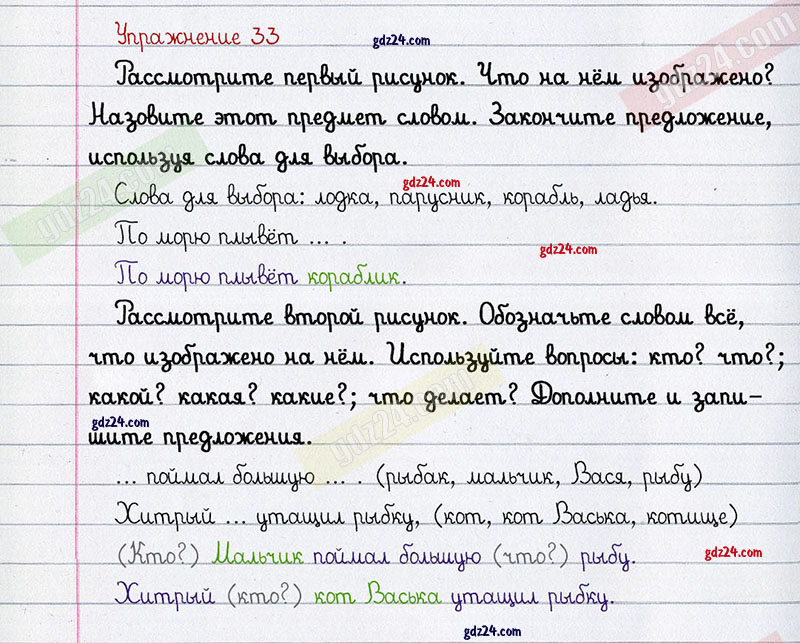 Упражнение 33
gdz24.com
Рассмотрите первый рисунок. Что на нём изображено?
Назовите этот предмет словом. Закончите предложение,
используя слова для выбора.
gdz24.com
Слова для выбора: лодка, парусник, корабль, ладья.
По морю плывёт ... .
gdz24.com
По морю плывёт кораблик.
Рассмотрите второй рисунок. Обозначьте словом всё,
что изображено на нём. Используйте вопросы: кто? что?;
какой? какая? какие?; что делает? Дополните и запи-
gdz24.com
шите предложения.
... поймал большую ... . (рыбак, мальчик, Вася, рыбу)
Хитрый ... утащил рыбку, (кот, кот Васька, котище)
(Кто?) Мальчик поймал большую (что?) рыбу.
gdz24.com
Хитрый (кто?) кот Васька утащил рыбку.
gdz24.com
gdz24.com
gdz24.com
gdz24.com